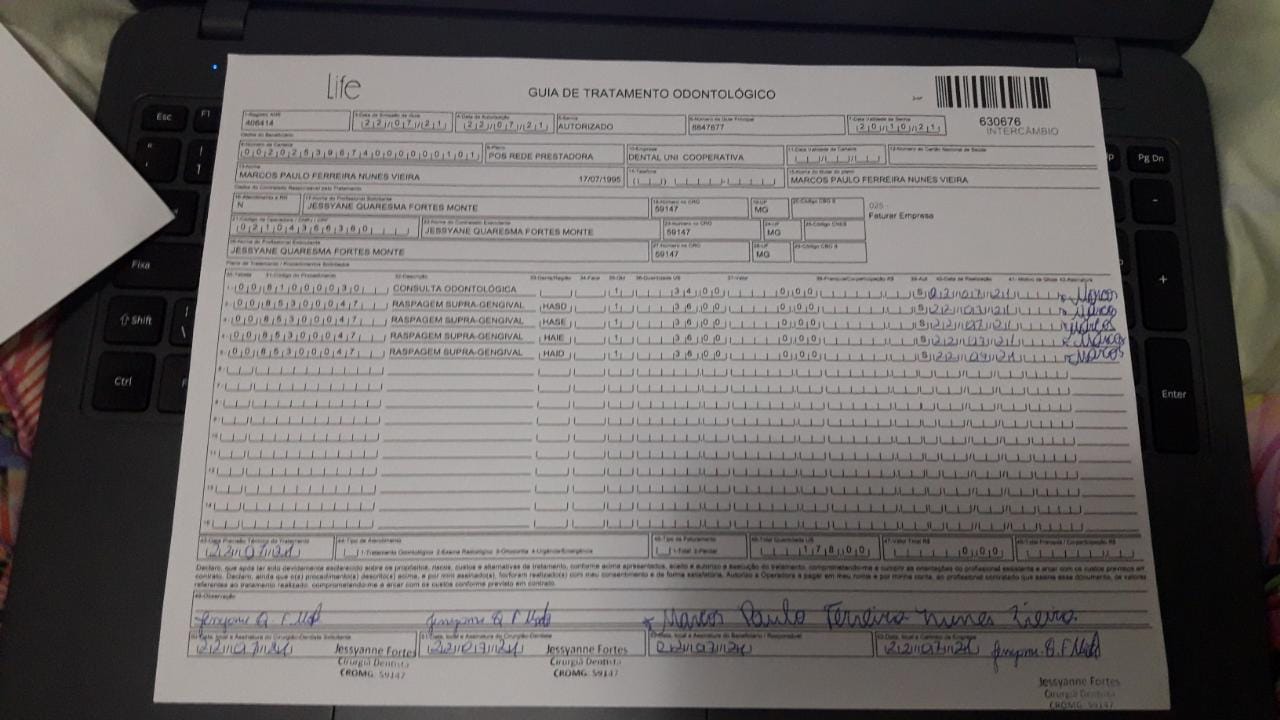 Life
GUIA DE TRATAMENTO ODONTOLÓGICO
630676
INTERCÂMBIO
1-Registro ANS
406414
3-Data de Emissão da Guia
22/07/21
4-Data de Autorização
22/07/21
5-Senha
AUTORIZADO
6-Número da Guia Principal
6647677
7-Data Validade da Senha
20/10/21
Dados do Beneficiário
8-Número da Carteira
9-Plano
POS REDE PRESTADORA
10-Empresa
DENTAL UNI COOPERATIVA
11-Data Validade da Carteira
12-Número do Cartão Nacional de Saúde
13-Nome
MARCOS PAULO FERREIRA NUNES VIEIRA 17/07/1995
14-Telefone
15-Nome do titular do plano
MARCOS PAULO FERREIRA NUNES VIEIRA
Dados do Contratado Responsável pelo Tratamento
16-Atendimento a RN
N
17-Nome do Profissional Solicitante
JESSYANE QUARESMA FORTES MONTE
18-Número no CRO
59147
19-UF
MG
20-Código CBO S
025 -
Faturar Empresa
21-Código da Operadora / CNPJ / CPF
02104366360
22-Nome do Contratado Executante
JESSYANE QUARESMA FORTES MONTE
23-Número no CRO
59147
24-UF
MG
25-Código CNES
26-Nome do Profissional Executante
JESSYANE QUARESMA FORTES MONTE
27-Número no CRO
59147
28-UF
MG
29-Código CBO S
Plano de Tratamento / Procedimentos Solicitados
30-Tabela 31-Código do Procedimento 32-Descrição 33-Dente/Região 34-Face 35-Qtd 36-Quantidade US 37-Valor 38-Franquia/Coparticipação R$ 39-Aut 40-Data de Realização 41-Motivo de Glosa 42-Assinatura
1- 0081000030 CONSULTA ODONTOLÓGICA 1 34,00 0,00 S 22/07/21 Marcos
2- 0085300047 RASPAGEM SUPRA-GENGIVAL HASD 1 36,00 0,00 S 22/07/21 Marcos
3- 0085300047 RASPAGEM SUPRA-GENGIVAL HASE 1 36,00 0,00 S 22/07/21 Marcos
4- 0085300047 RASPAGEM SUPRA-GENGIVAL HAIE 1 36,00 0,00 S 22/07/21 Marcos
5- 0085300047 RASPAGEM SUPRA-GENGIVAL HAID 1 36,00 0,00 S 22/07/21 Marcos
6-
7-
8-
9-
10-
11-
12-
13-
14-
15-
43-Data Previsão Término do Tratamento
22/07/21
44-Tipo de Atendimento
1-Tratamento Odontológico 2-Exame Radiológico 3-Ortodontia 4-Urgência/Emergência
45-Tipo de Faturamento
1-Total 2-Parcial
46-Total Quantidade US
178,00
47-Valor Total R$
0,00
48-Total Franquia / Coparticipação R$
Declaro, que após ter sido devidamente esclarecido sobre os propósitos, riscos, custos e alternativas de tratamento, conforme acima apresentados, aceito e autorizo a execução do tratamento, comprometendo-me a cumprir as orientações do profissional assistente e arcar com os custos previstos em
contrato. Declaro, ainda que o(s) procedimento(s) descrito(s) acima, e por mim assinado(s), foi/foram realizado(s) com meu consentimento e de forma satisfatória. Autorizo a Operadora a pagar em meu nome e por minha conta, ao profissional contratado que assina esse documento, os valores
referentes ao tratamento realizado, comprometendo-me a arcar com os custos conforme previsto em contrato.
49-Observação
Marcos Paulo Ferreira Nunes Vieira
50-Data, local e Assinatura do Cirurgião-Dentista Solicitante
22/07/21
51-Data, local e Assinatura do Cirurgião-Dentista
22/07/21
52-Data, local e Assinatura do Beneficiário / Responsável
22/07/21
53-Data, local e Carimbo da Empresa
22/07/21
Jessyanne Fortes
Cirurgiã Dentista
CROMG. 59147
Jessyanne Fortes
Cirurgiã Dentista
CROMG. 59147
Jessyanne Fortes
Cirurgiã Dentista
CROMG 59147
Esc
F1
Fixa
Shift
Ctrl
Pg Dn
Enter